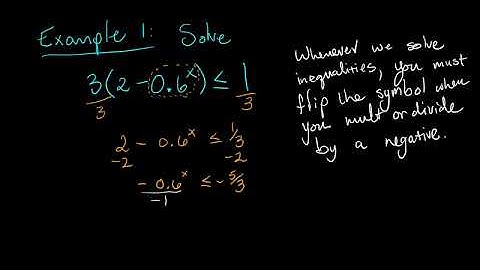 Example 1: Solve
3(2 - 0.6^x) ≤ 1
3 3
2 - 0.6^x ≤ 1/3
-2 -2
- 0.6^x ≤ - 5/3
-1
Whenever we solve
inequalities, you must
flip the symbol when
you mult or divide
by a negative.